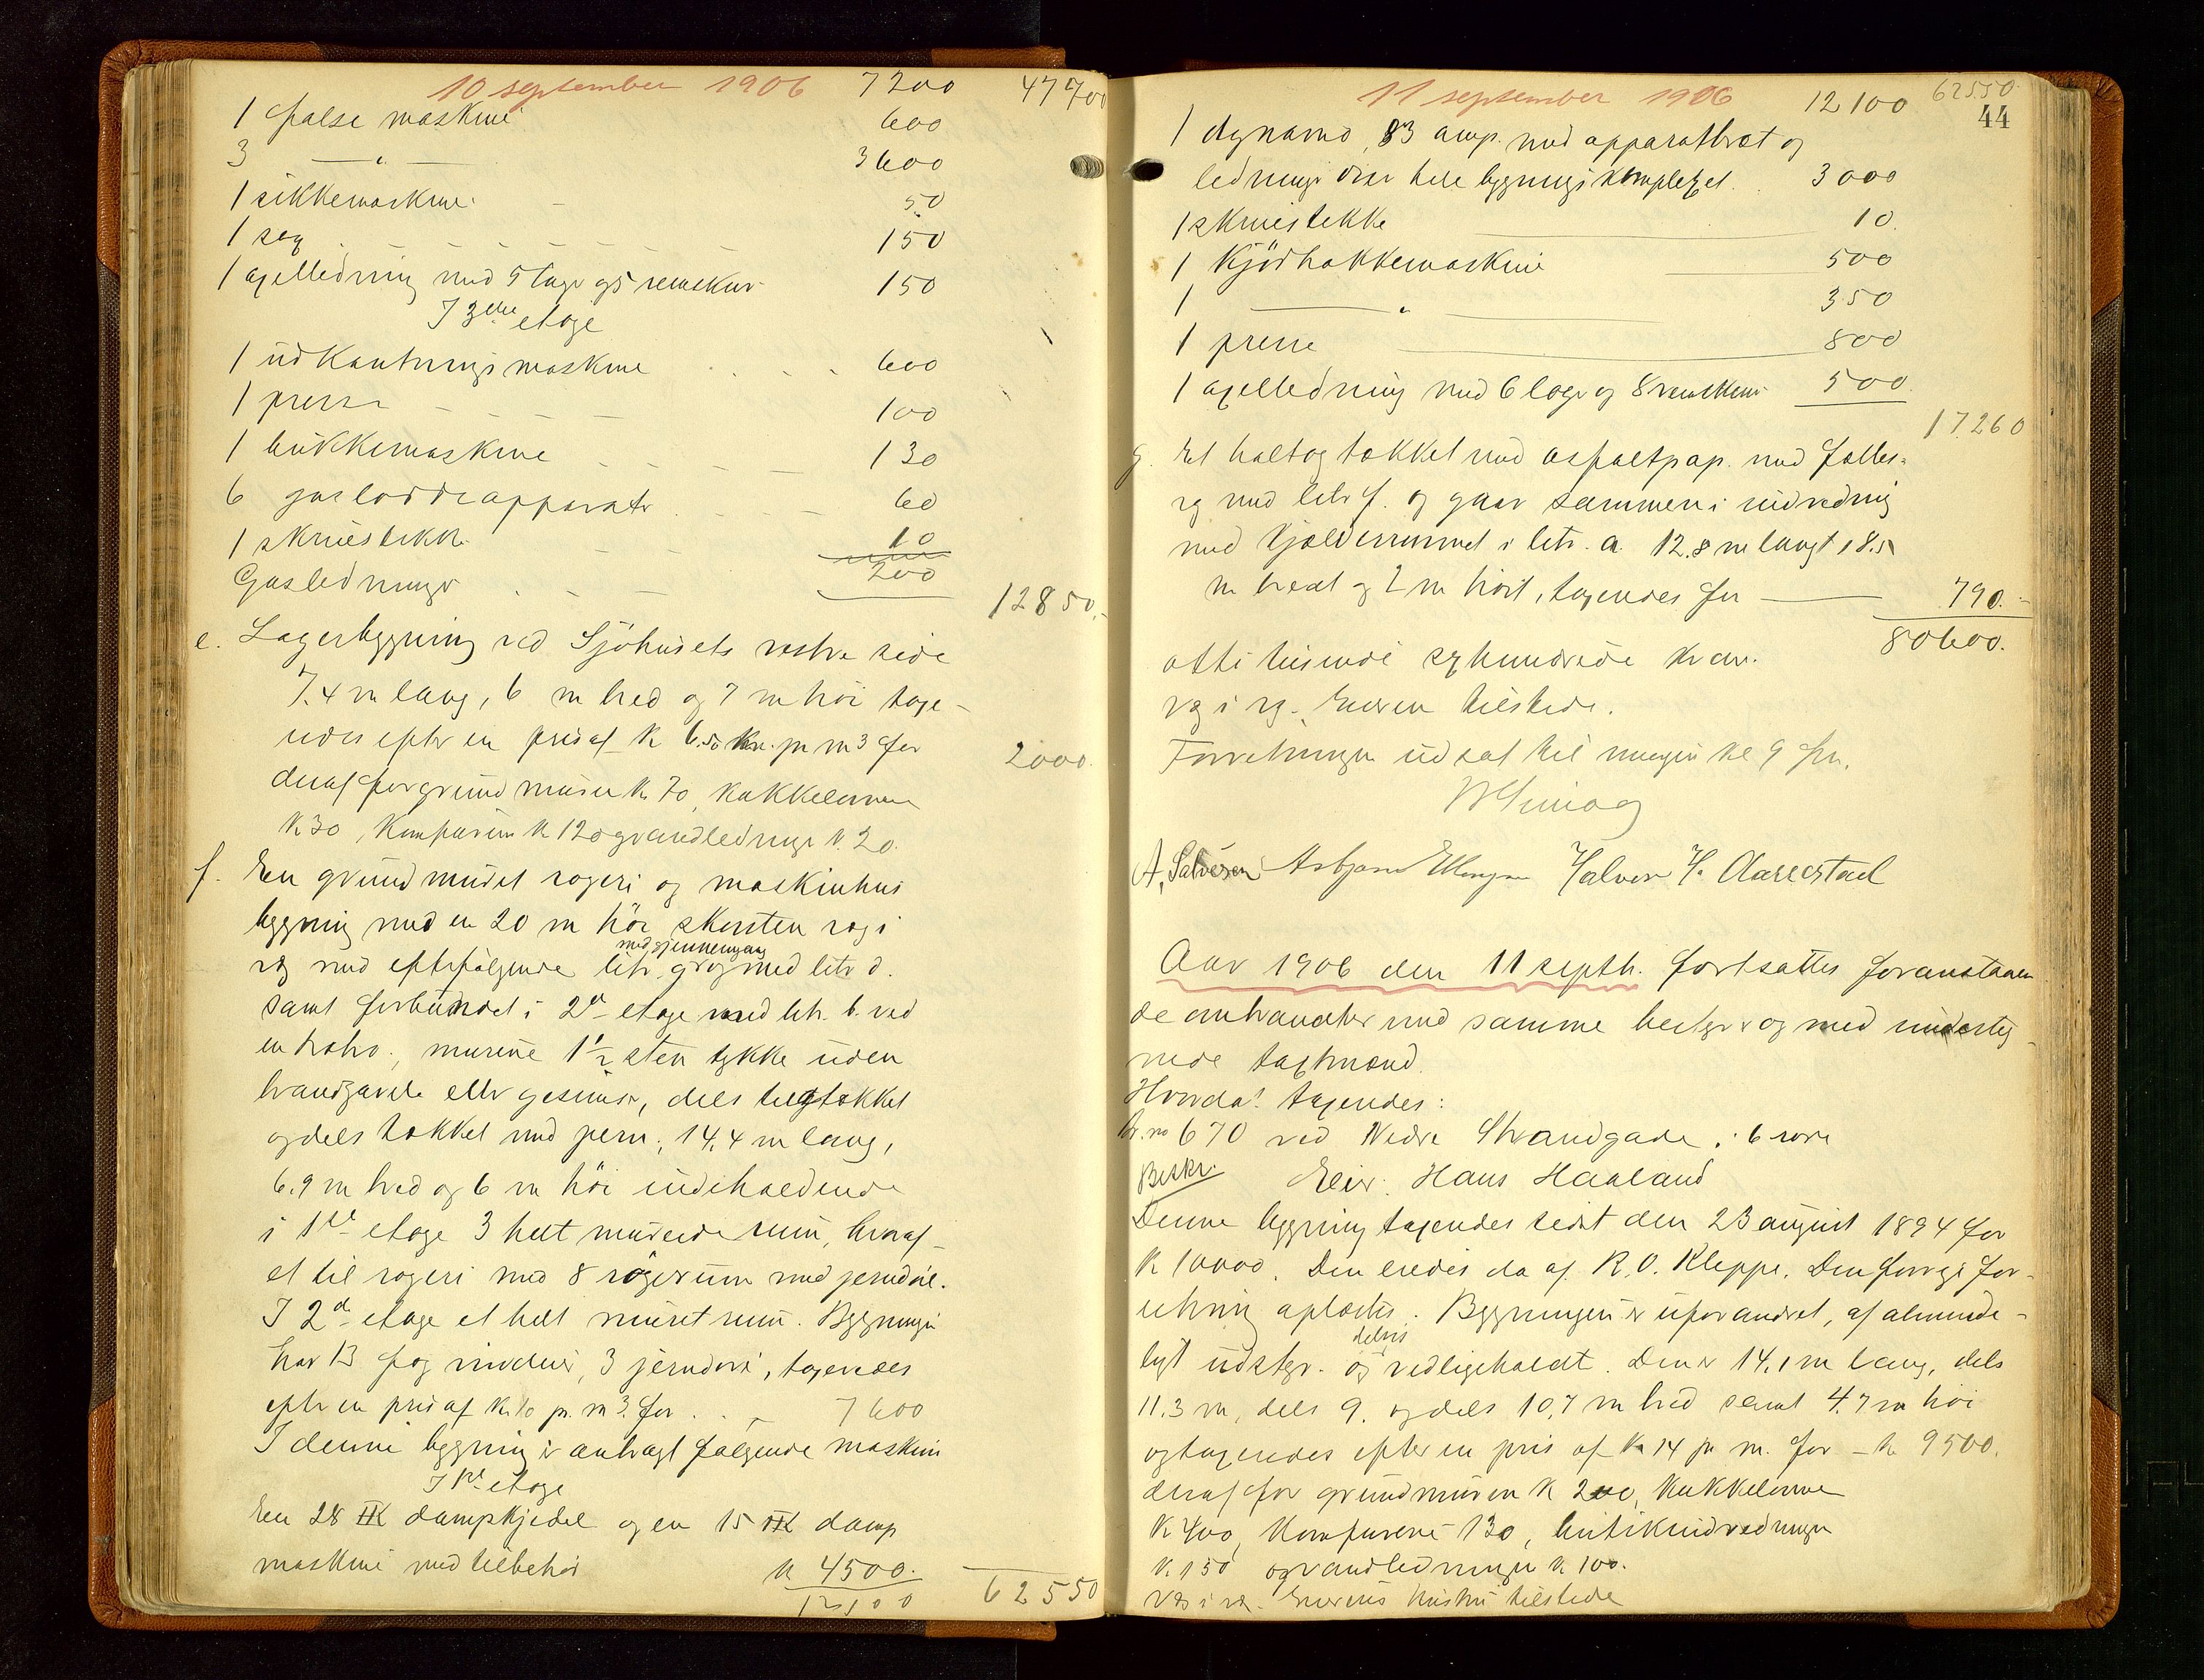 10 september 1906 7200 47700
1 falsemaskine 600
3 —„— 3600
1 sikkemaskine 50
1 sag 150
1 axelledning med 5 lager og 5 remskiver 150
I 3die etage
1 udkantningsmaskine 600
1 presse 100
1 bukkemaskine 130
6 gasloddeapparater 60
1 skruestikke 10
Gasledninger 200
12850.-
e. Lagerbygning ved Sjöhusets vestre side
7.4 m lang, 6 m bred og 7 m höi taxe-
redes efter en pris af k 6.50 kr. pr m3 for 2000.
deraf for grundmuren k. 70, kakkelovne
k 30, komfuren k 120 og vandledninger k. 20.
f. En grundmuret rögeri og maskinhus
bygning med en 20 m höi skorsten væg i
væg med efterfölgende litr. g og med gjennemgang med litr d.
samt forbundet i 2den etage med litr. b. ved
en bro, murene 1½ sten tykke uden
brandgavle eller gesimser, dels teglstækket
og dels tækket med jern, 14,4 m lang,
6.9 m bred og 6 m höi indeholdende
i 1ste etage 3 helt murede rum, hvoraf
et til rögeri med 8 rögerum med jerndöre.
I 2den etage et helt muret rum. Bygningen
har 13 fag vinduer, 3 jerndöre, taxeredes
efter en pris af kr. 10 pr. m3. for 7600
I denne bygning er anbragt fölgende maskiner
I 1ste etage
En 28 HK dampkjedel og en 15 HK damp
maskine med tilbehör k 4500.
12100 62550
11 september 1906 12100 62550
44
1 dynamo, 83 amp. med apparatbræt og
ledninger over hele bygningskomplexet 3000
1 skruestikke 10.
1 Kjödhakkemaskine 500
1 —„— 350
1 presse 800
1 axelledning med 6 lager og 8 remskiver 500.
17260
g. Et halvtag tækket med asfaltpap. med fælles-
væg med litr f. og gaar sammen i indredning
med kjælderrummet i litr. a. 12.8 m langt, 8.5
m bredt og 2 m höit, taxeredes for 790.-
80600.
otti tusinde sexhundrede kroner.
væg i væg. Eieren tilstede.
Forretningen udsat til morgen kl 9 fm.
A. Salvesen Asbjørn Ellingsen Halvor H. Aarrestad
Aar 1906 den 11 septbr. fortsattes foranstaaen
de omhandler med samme bestyrer og med underteg
nede taxtmænd.
Hvorda taxeredes:
Br. no 670 ved Nedre Strandgade, i 6 rode
Beskr. Eier: Hans Haaland
Denne bygning taxeredes sidst den 23 august 1894 for
k 10000. Den eiedes da af R. O. Kleppe. Den forrige for-
retning oplæstes. Bygningen er uforandret, af alminde-
ligt udstyr. og delvis vedligeholdt. Den er 14.1 m lang, dels
11.3 m, dels 9. og dels 10,7 m bred samt 4.7 m höi
og taxeredes efter en pris af kr 14 pr m. for – k 9500.
deraf for grundmuren k 200, kakkelovne
k 400, komfurene 130, butikindredninger
k. 150 og vandledninger k. 100.
Væg i væg. Eierens hustru tilstede